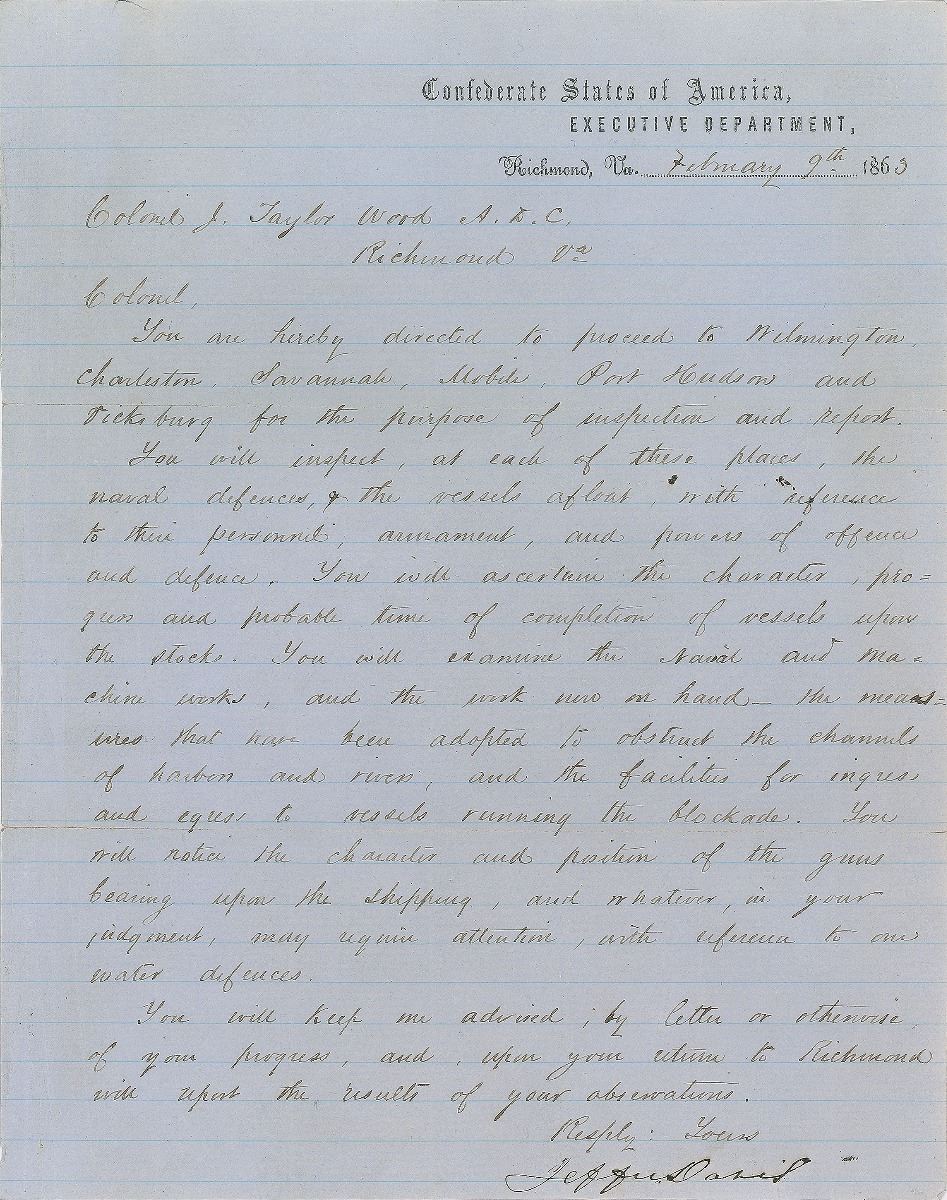 Confederate States of America,
EXECUTIVE DEPARTMENT,
Richmond, Va. February 9th 1863
Colonel J. Taylor Wood A. D. C.
Richmond Va
Colonel,
You are hereby directed to proceed to Wilmington,
Charleston, Savannah, Mobile, Port Hudson and
Vicksburg for the purpose of inspection and report.
You will inspect, at each of these places, the
naval defences, & the vessels afloat with reference
to their personnel, armament, and powers of offence
and defence. You will ascertain the character, pro=
gress and probable time of completion of vessels upon
the stocks. You will examine the Naval and Ma=
chine works, and the work now on hand — the meas=
ures that have been adopted to obstruct the channels
of harbors and rivers, and the facilities for ingress
and egress to vessels running the blockade. You
will notice the character and position of the guns
bearing upon the shipping, and whatever, in your
judgment, may require attention, with reference to our
water defences.
You will keep me advised, by letter or otherwise,
of your progress, and, upon your return to Richmond
will report the results of your observations.
Resply: Yours
Jeffn. Davis